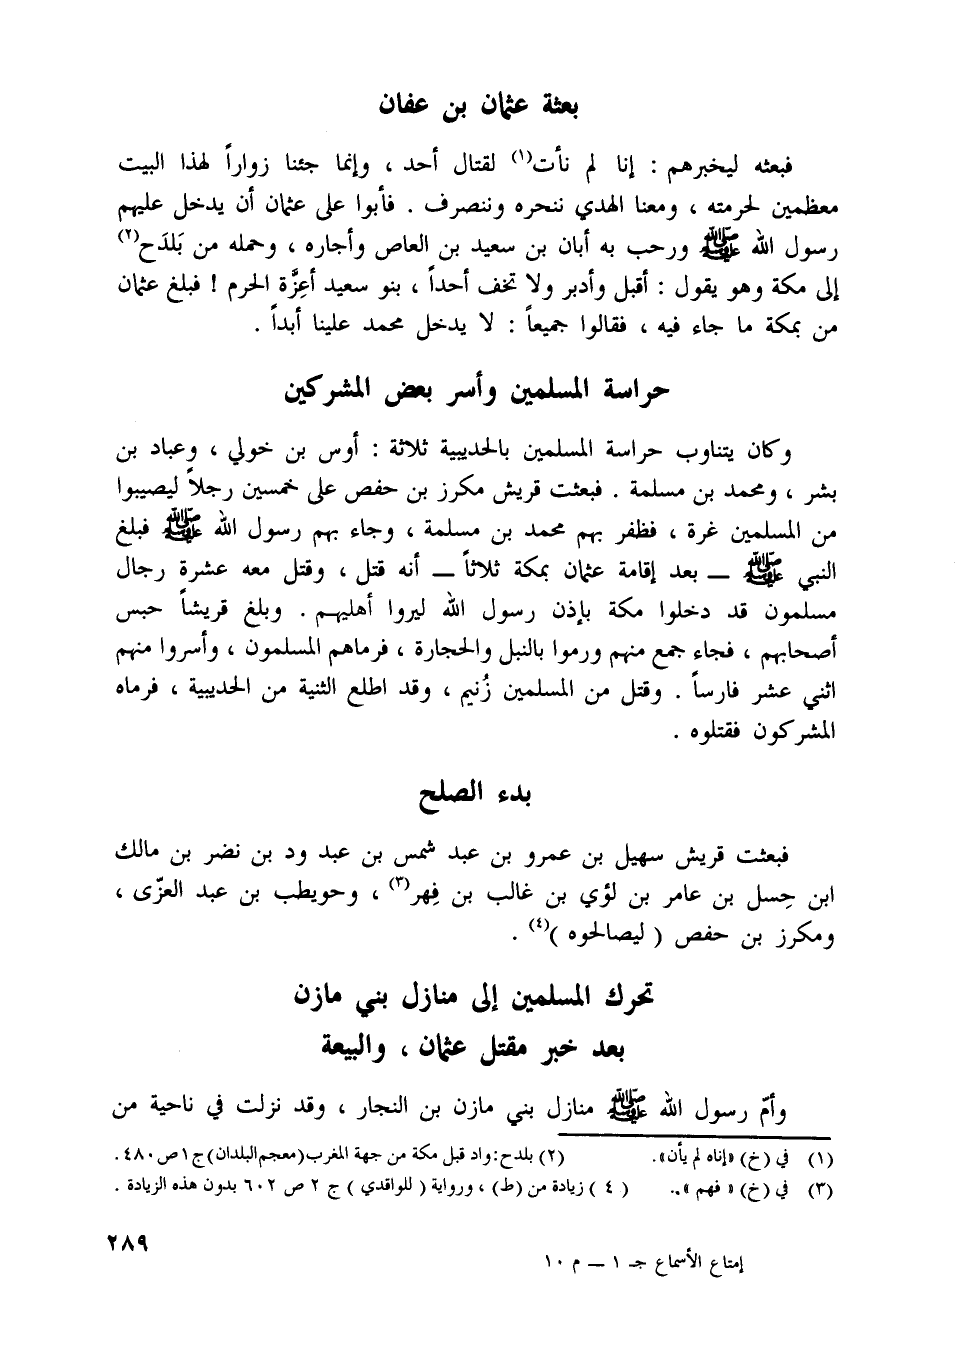 بعثة عثمان بن عفان
فبعثه ليخبرهم : إنا لم نأت(١) لقتال أحد ، وإنما جئنا زواراً لهذا البيت
معظمين لحرمته ، ومعنا الهدي ننحره وننصرف . فأبوا على عثمان أن يدخل عليهم
رسول الله ﷺ ورحب به أبان بن سعيد بن العاص وأجاره ، وحمله من بَلدَح(٢)
إلى مكة وهو يقول : أقبل وأدبر ولا تخف أحداً ، بنو سعيد أعِزَّة الحرم ! فبلغ عثمان
من بمكة ما جاء فيه ، فقالوا جميعاً : لا يدخل محمد علينا أبداً .
حراسة المسلمين وأسر بعض المشركين
وكان يتناوب حراسة المسلمين بالحديبية ثلاثة : أوس بن خولي ، وعباد بن
بشر ، ومحمد بن مسلمة . فبعثت قريش مكرز بن حفص على خمسين رجلاً ليصيبوا
من المسلمين غرة ، فظفر بهم محمد بن مسلمة ، وجاء بهم رسول الله ﷺ فبلغ
النبي ﷺ — بعد إقامة عثمان بمكة ثلاثاً — أنه قتل ، وقتل معه عشرة رجال
مسلمون قد دخلوا مكة بإذن رسول الله ليروا أهليهم . وبلغ قريشاً حبس
أصحابهم ، فجاء جمع منهم ورموا بالنبل والحجارة ، فرماهم المسلمون ، وأسروا منهم
اثني عشر فارساً . وقتل من المسلمين زُنيم ، وقد اطلع الثنية من الحديبية ، فرماه
المشركون فقتلوه .
بدء الصلح
فبعثت قريش سهيل بن عمرو بن عبد شمس بن عبد ود بن نضر بن مالك
ابن حِسل بن عامر بن لؤي بن غالب بن فِهر(٣) ، وحويطب بن عبد العزّى ،
ومكرز بن حفص ( ليصالحوه )(٤) .
تحرك المسلمين إلى منازل بني مازن
بعد خبر مقتل عثمان ، والبيعة
وأمّ رسول الله ﷺ منازل بني مازن بن النجار ، وقد نزلت في ناحية من
(١) في (خ) «إناه لم يأن». (٢) بلدح: واد قبل مكة من جهة المغرب(معجم البلدان)ج١ص٤٨٠.
(٣) في (خ) « فهم ».. ( ٤ ) زيادة من (ط) ، ورواية ( للواقدي ) ج ٢ ص ٦٠٢ بدون هذه الزيادة .
٢٨٩
إمتاع الأسماع جـ ١ — م ١٠